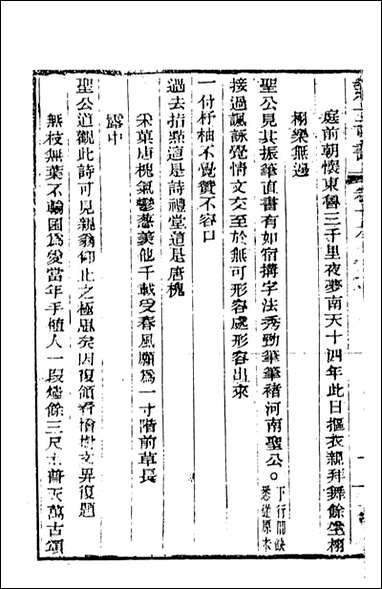 庭前朝懷東魯三千里夜夢南天十四年此日摳衣親拜舞餘生栩
栩樂無過
聖公見其振筆直書有如宿搆字法秀勁筆筆褚河南聖公。下行間缺悉從原本
接過諷詠覺情文交至於無可形容處形容出來
一付杼柚不覺贊不容口
過去指點道是詩禮堂道是唐槐
宋菓唐槐氣鬱葱羨他千載受春風願爲一寸階前草長
露中
聖公道觀此詩可見親翁仰止之極思矣因復領看檜樹又畀復題
無枝無葉不輪囷爲愛當年手植人一段燼餘三尺土普天萬古頌